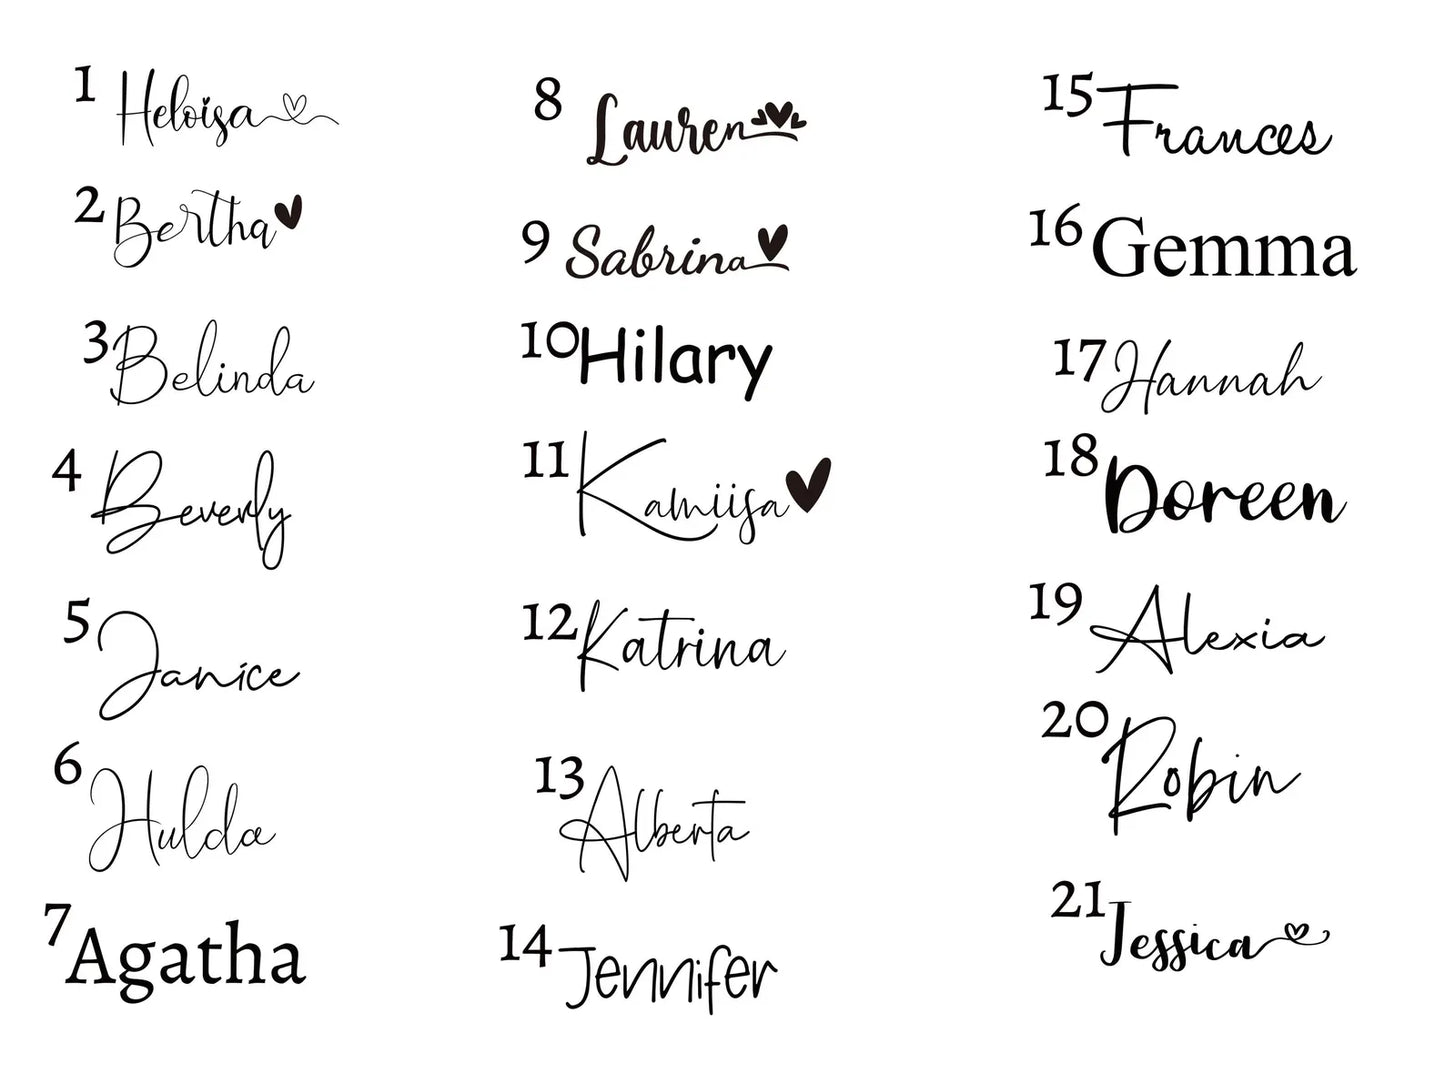 1 Heloisa
2 Bertha
3 Belinda
4 Beverly
5 Janice
6 Hulda
7 Agatha
8 Lauren
9 Sabrina
10 Hilary
11 Kamiisa
12 Katrina
13 Alberta
14 Jennifer
15 Frances
16 Gemma
17 Hannah
18 Doreen
19 Alexia
20 Robin
21 Jessica